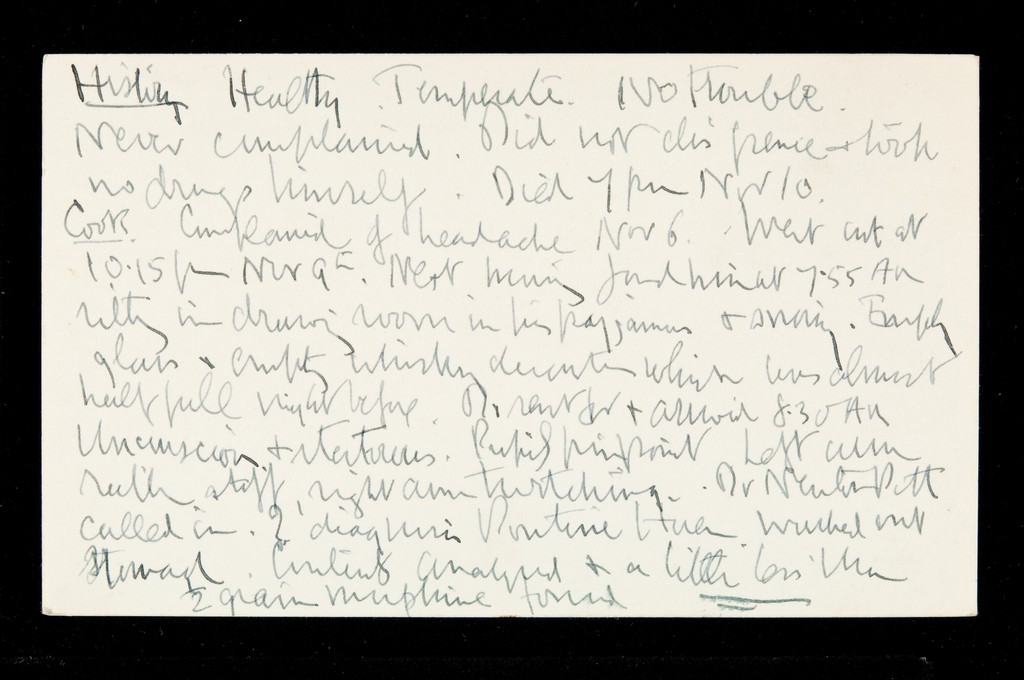 History Healthy. Temperate. No trouble.
Never complained. Did not dispense & took
no drugs himself. Died 7 pm Nov 10.
Cook. Complained of headache Nov 6. Went out at
10.15 pm Nov 9th. Next morning found him at 7.55 AM
sitting in drawing room in his pajjamas & snoring. Empty
glass & empty whisky decanter which was almost
half full night before. Dr sent for & arrived 8.30 AM
Unconscious & stertorous. Pupils pinpoint Left arm
rather stiff, right arm twitching. Dr Newton Pitt
called in. ? diagnosis Pontine Haem washed out
Stomach. Contents analysed & a little less than
½ grain morphine found